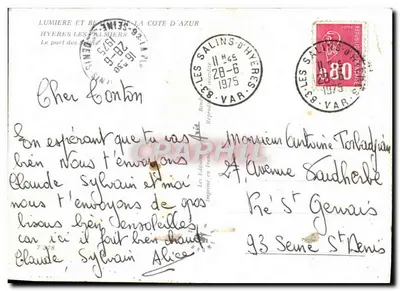 LUMIERE ET BE LA COTE D'AZUR
HYERES LES PALMIERS
Le port des
16H30
28-6
1975
83-LES SALINS-D'HYERES
11H45
28-6
1975
VAR
0.80
Cher Tonton
En espérant que tu vas
bien nous t'envoyons
Claude, Sylvain et moi
nous t'envoyons de gros
bisous bien ensoleillés
car ici il fait bien chaud
Claude, Sylvain Alice
Monsieur Antoine
27, Avenue Faidherbe
Pré St Gervais
93 Seine St Denis
cparama